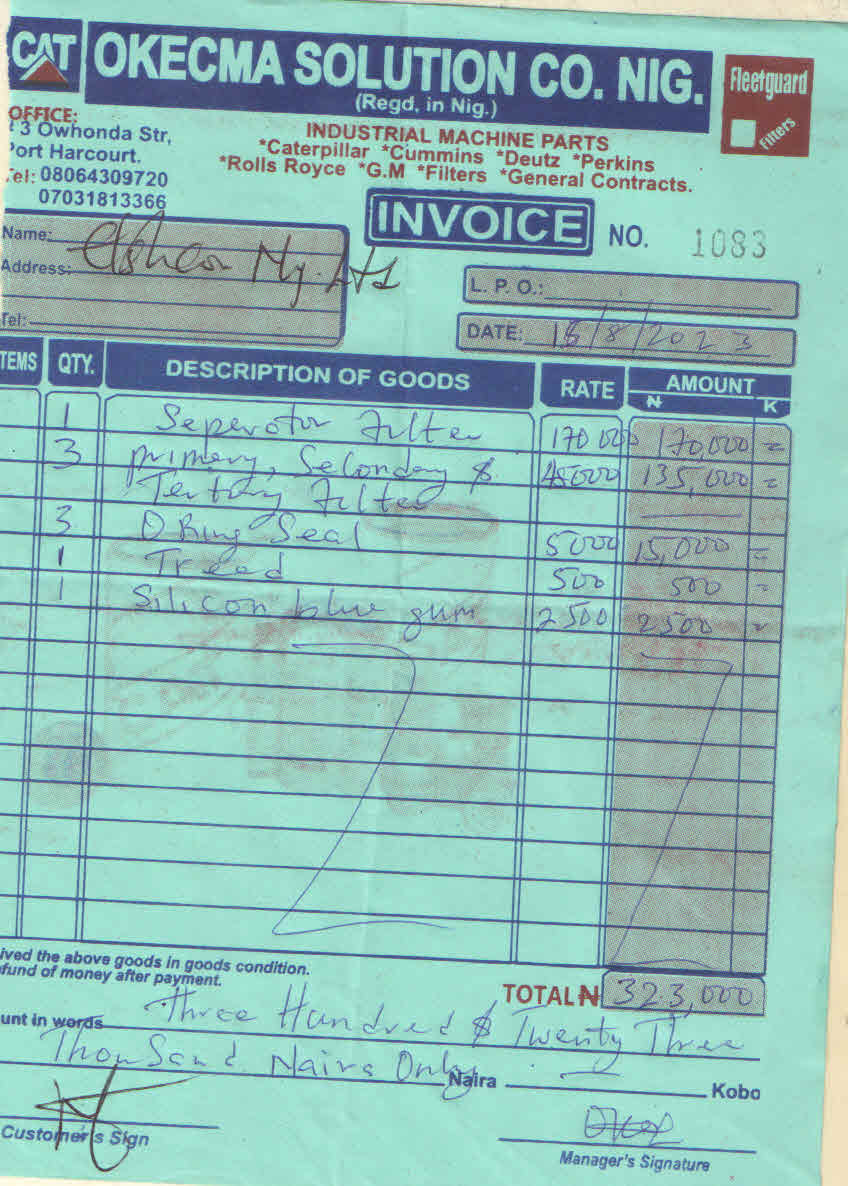 CAT OKECMA SOLUTION CO. NIG. Fleetguard
(Regd. in Nig.) Filters
OFFICE:
3 Owhonda Str,
Port Harcourt.
Tel: 08064309720
07031813366
INDUSTRIAL MACHINE PARTS
*Caterpillar *Cummins *Deutz *Perkins
*Rolls Royce *G.M *Filters *General Contracts.
INVOICE NO. 1083
Name:
Address:
Tel:
L. P. O.:
DATE: 15/8/2023
TEMS QTY. DESCRIPTION OF GOODS RATE AMOUNT
₦ K
1 Seperator Filter 170000 170,000 =
3 primary, Secondary & 45000 135,000 =
Tertiary Filter
3 O Ring Seal 5000 15,000 =
1 Treed 500 500 =
1 Silicon blue gum 2500 2500 =
ived the above goods in goods condition.
fund of money after payment.
TOTAL ₦ 323,000
unt in words Three Hundred & Twenty Three
Thousand Naira Only Naira Kobo
Customer's Sign
Manager's Signature